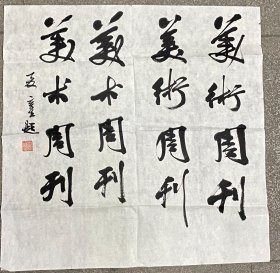 美術周刊
美術周刊
美术周刊
美术周刊